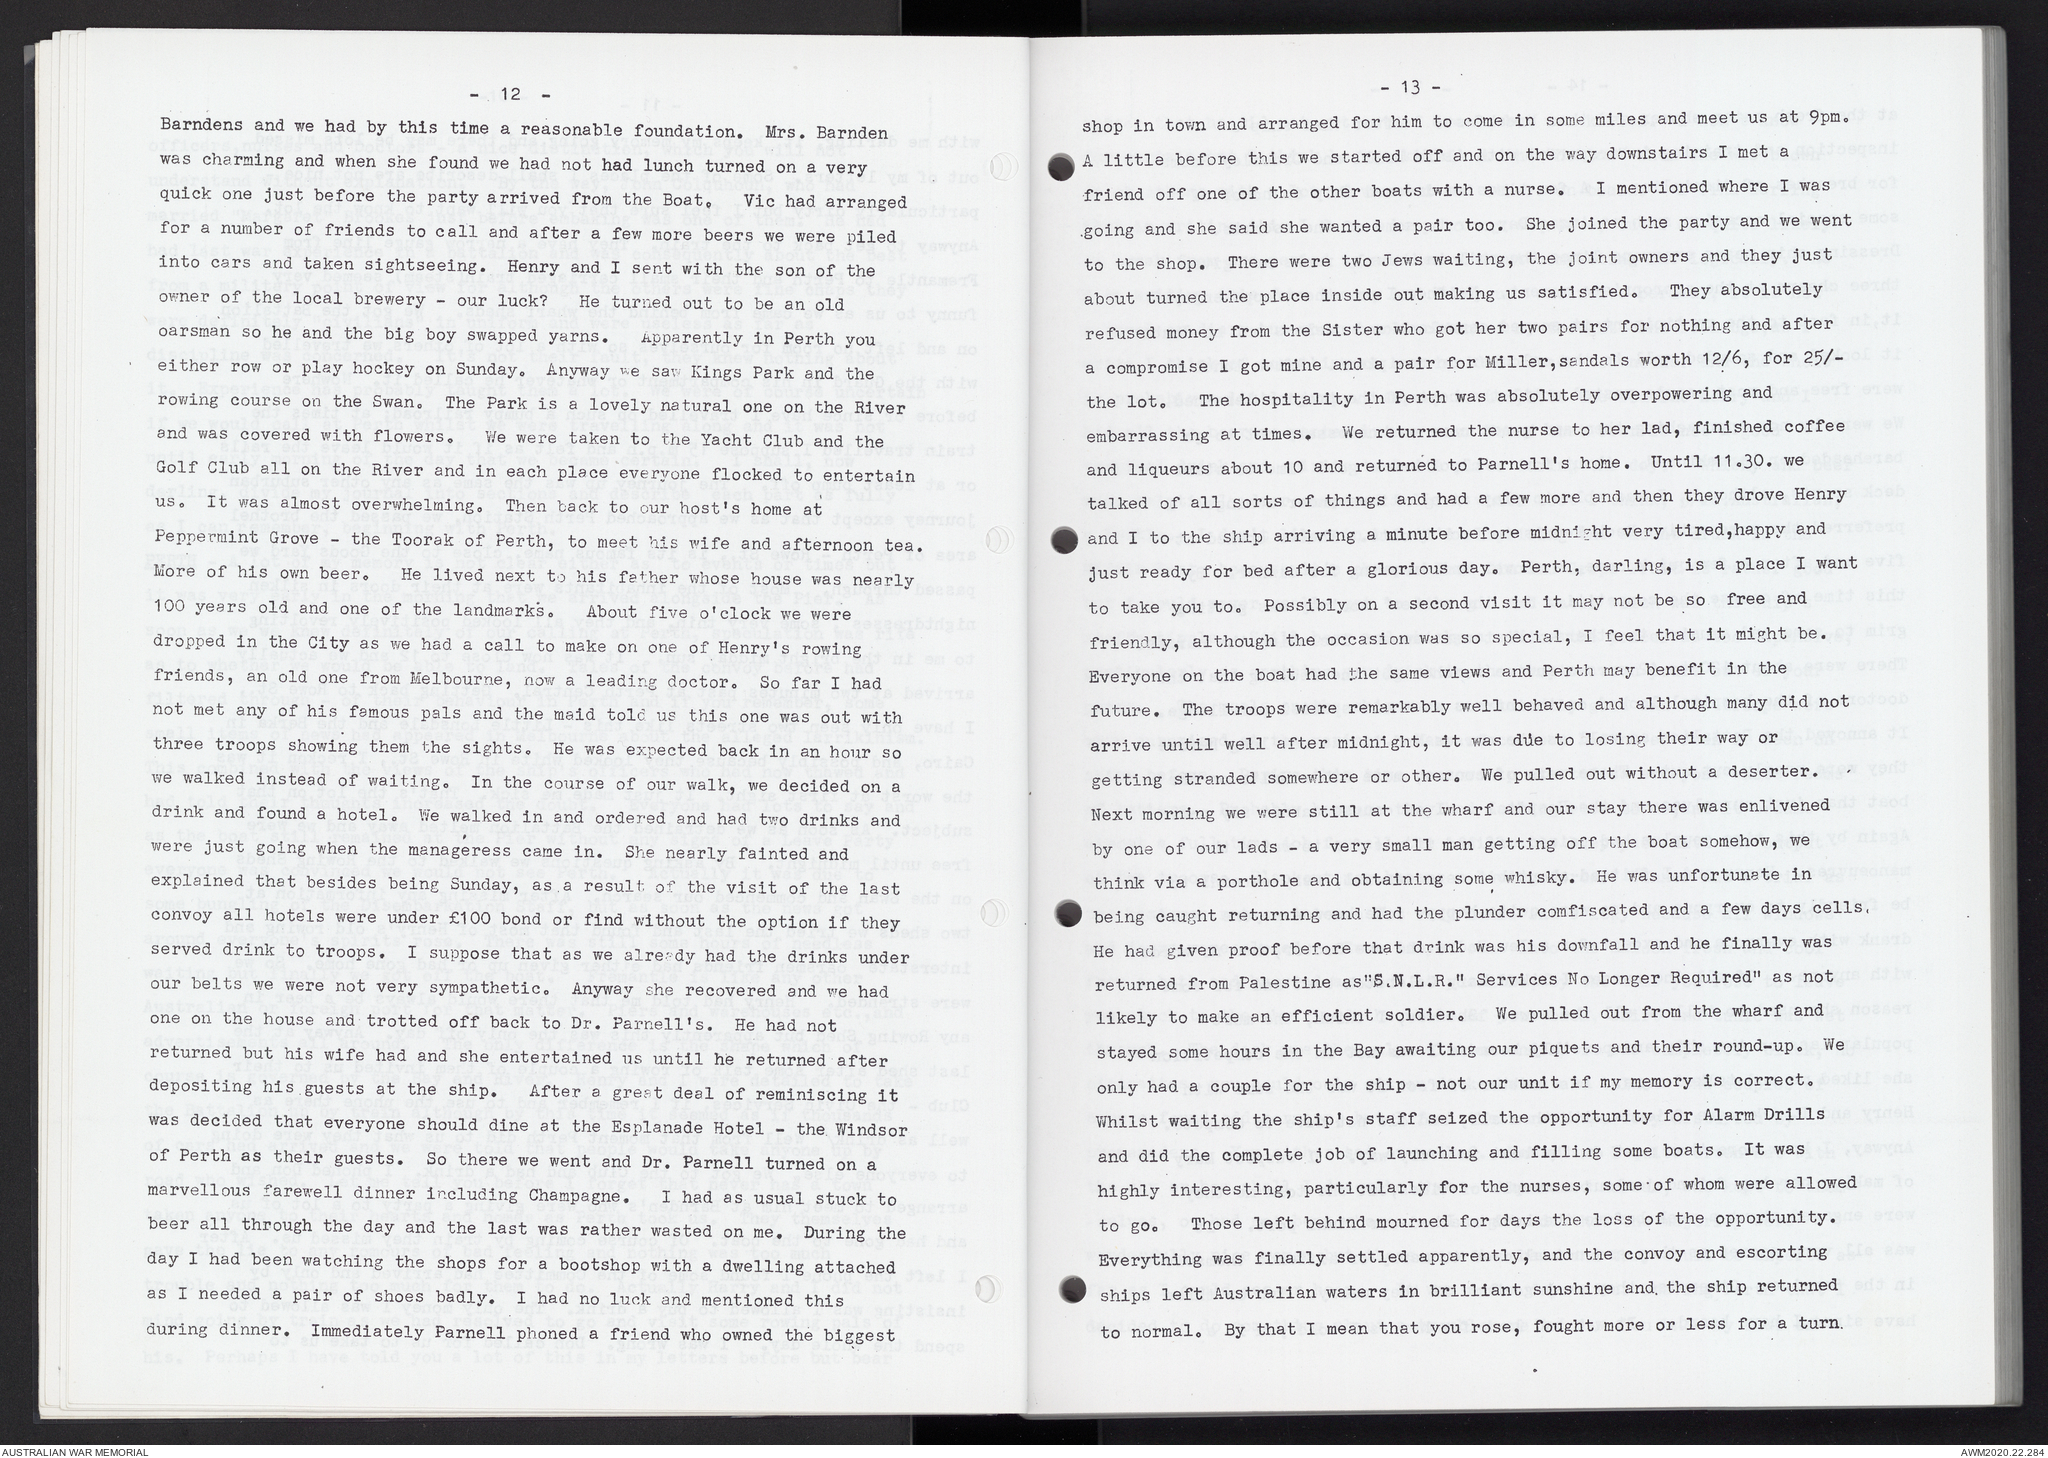 - 12 -
Barndens and we had by this time a reasonable foundation. Mrs. Barnden
was charming and when she found we had not had lunch turned on a very
quick one just before the party arrived from the Boat. Vic had arranged
for a number of friends to call and after a few more beers we were piled
into cars and taken sightseeing. Henry and I sent with the son of the
owner of the local brewery - our luck? He turned out to be an old
oarsman so he and the big boy swapped yarns. Apparently in Perth you
either row or play hockey on Sunday. Anyway we saw Kings Park and the
rowing course on the Swan. The Park is a lovely natural one on the River
and was covered with flowers. We were taken to the Yacht Club and the
Golf Club all on the River and in each place everyone flocked to entertain
us. It was almost overwhelming. Then back to our host's home at
Peppermint Grove - the Toorak of Perth, to meet his wife and afternoon tea.
More of his own beer. He lived next to his father whose house was nearly
100 years old and one of the landmarks. About five o'clock we were
dropped in the City as we had a call to make on one of Henry's rowing
friends, an old one from Melbourne, now a leading doctor. So far I had
not met any of his famous pals and the maid told us this one was out with
three troops showing them the sights. He was expected back in an hour so
we walked instead of waiting. In the course of our walk, we decided on a
drink and found a hotel. We walked in and ordered and had two drinks and
were just going when the manageress came in. She nearly fainted and
explained that besides being Sunday, as a result of the visit of the last
convoy all hotels were under £100 bond or find without the option if they
served drink to troops. I suppose that as we already had the drinks under
our belts we were not very sympathetic. Anyway she recovered and we had
one on the house and trotted off back to Dr. Parnell's. He had not
returned but his wife had and she entertained us until he returned after
depositing his guests at the ship. After a great deal of reminiscing it
was decided that everyone should dine at the Esplanade Hotel - the Windsor
of Perth as their guests. So there we went and Dr. Parnell turned on a
marvellous farewell dinner including Champagne. I had as usual stuck to
beer all through the day and the last was rather wasted on me. During the
day I had been watching the shops for a bootshop with a dwelling attached
as I needed a pair of shoes badly. I had no luck and mentioned this
during dinner. Immediately Parnell phoned a friend who owned the biggest
- 13 -
shop in town and arranged for him to come in some miles and meet us at 9pm.
A little before this we started off and on the way downstairs I met a
friend off one of the other boats with a nurse. I mentioned where I was
going and she said she wanted a pair too. She joined the party and we went
to the shop. There were two Jews waiting, the joint owners and they just
about turned the place inside out making us satisfied. They absolutely
refused money from the Sister who got her two pairs for nothing and after
a compromise I got mine and a pair for Miller,sandals worth 12/6, for 25/-
the lot. The hospitality in Perth was absolutely overpowering and
embarrassing at times. We returned the nurse to her lad, finished coffee
and liqueurs about 10 and returned to Parnell's home. Until 11.30. we
talked of all sorts of things and had a few more and then they drove Henry
and I to the ship arriving a minute before midnight very tired,happy and
just ready for bed after a glorious day. Perth, darling, is a place I want
to take you to. Possibly on a second visit it may not be so free and
friendly, although the occasion was so special, I feel that it might be.
Everyone on the boat had the same views and Perth may benefit in the
future. The troops were remarkably well behaved and although many did not
arrive until well after midnight, it was due to losing their way or
getting stranded somewhere or other. We pulled out without a deserter.
Next morning we were still at the wharf and our stay there was enlivened
by one of our lads - a very small man getting off the boat somehow, we
think via a porthole and obtaining some whisky. He was unfortunate in
being caught returning and had the plunder comfiscated and a few days cells.
He had given proof before that drink was his downfall and he finally was
returned from Palestine as"S.N.L.R." Services No Longer Required" as not
likely to make an efficient soldier. We pulled out from the wharf and
stayed some hours in the Bay awaiting our piquets and their round-up. We
only had a couple for the ship - not our unit if my memory is correct.
Whilst waiting the ship's staff seized the opportunity for Alarm Drills
and did the complete job of launching and filling some boats. It was
highly interesting, particularly for the nurses, some of whom were allowed
to go. Those left behind mourned for days the loss of the opportunity.
Everything was finally settled apparently, and the convoy and escorting
ships left Australian waters in brilliant sunshine and the ship returned
to normal. By that I mean that you rose, fought more or less for a turn.
AUSTRALIAN WAR MEMORIAL
AWM2020.22.284